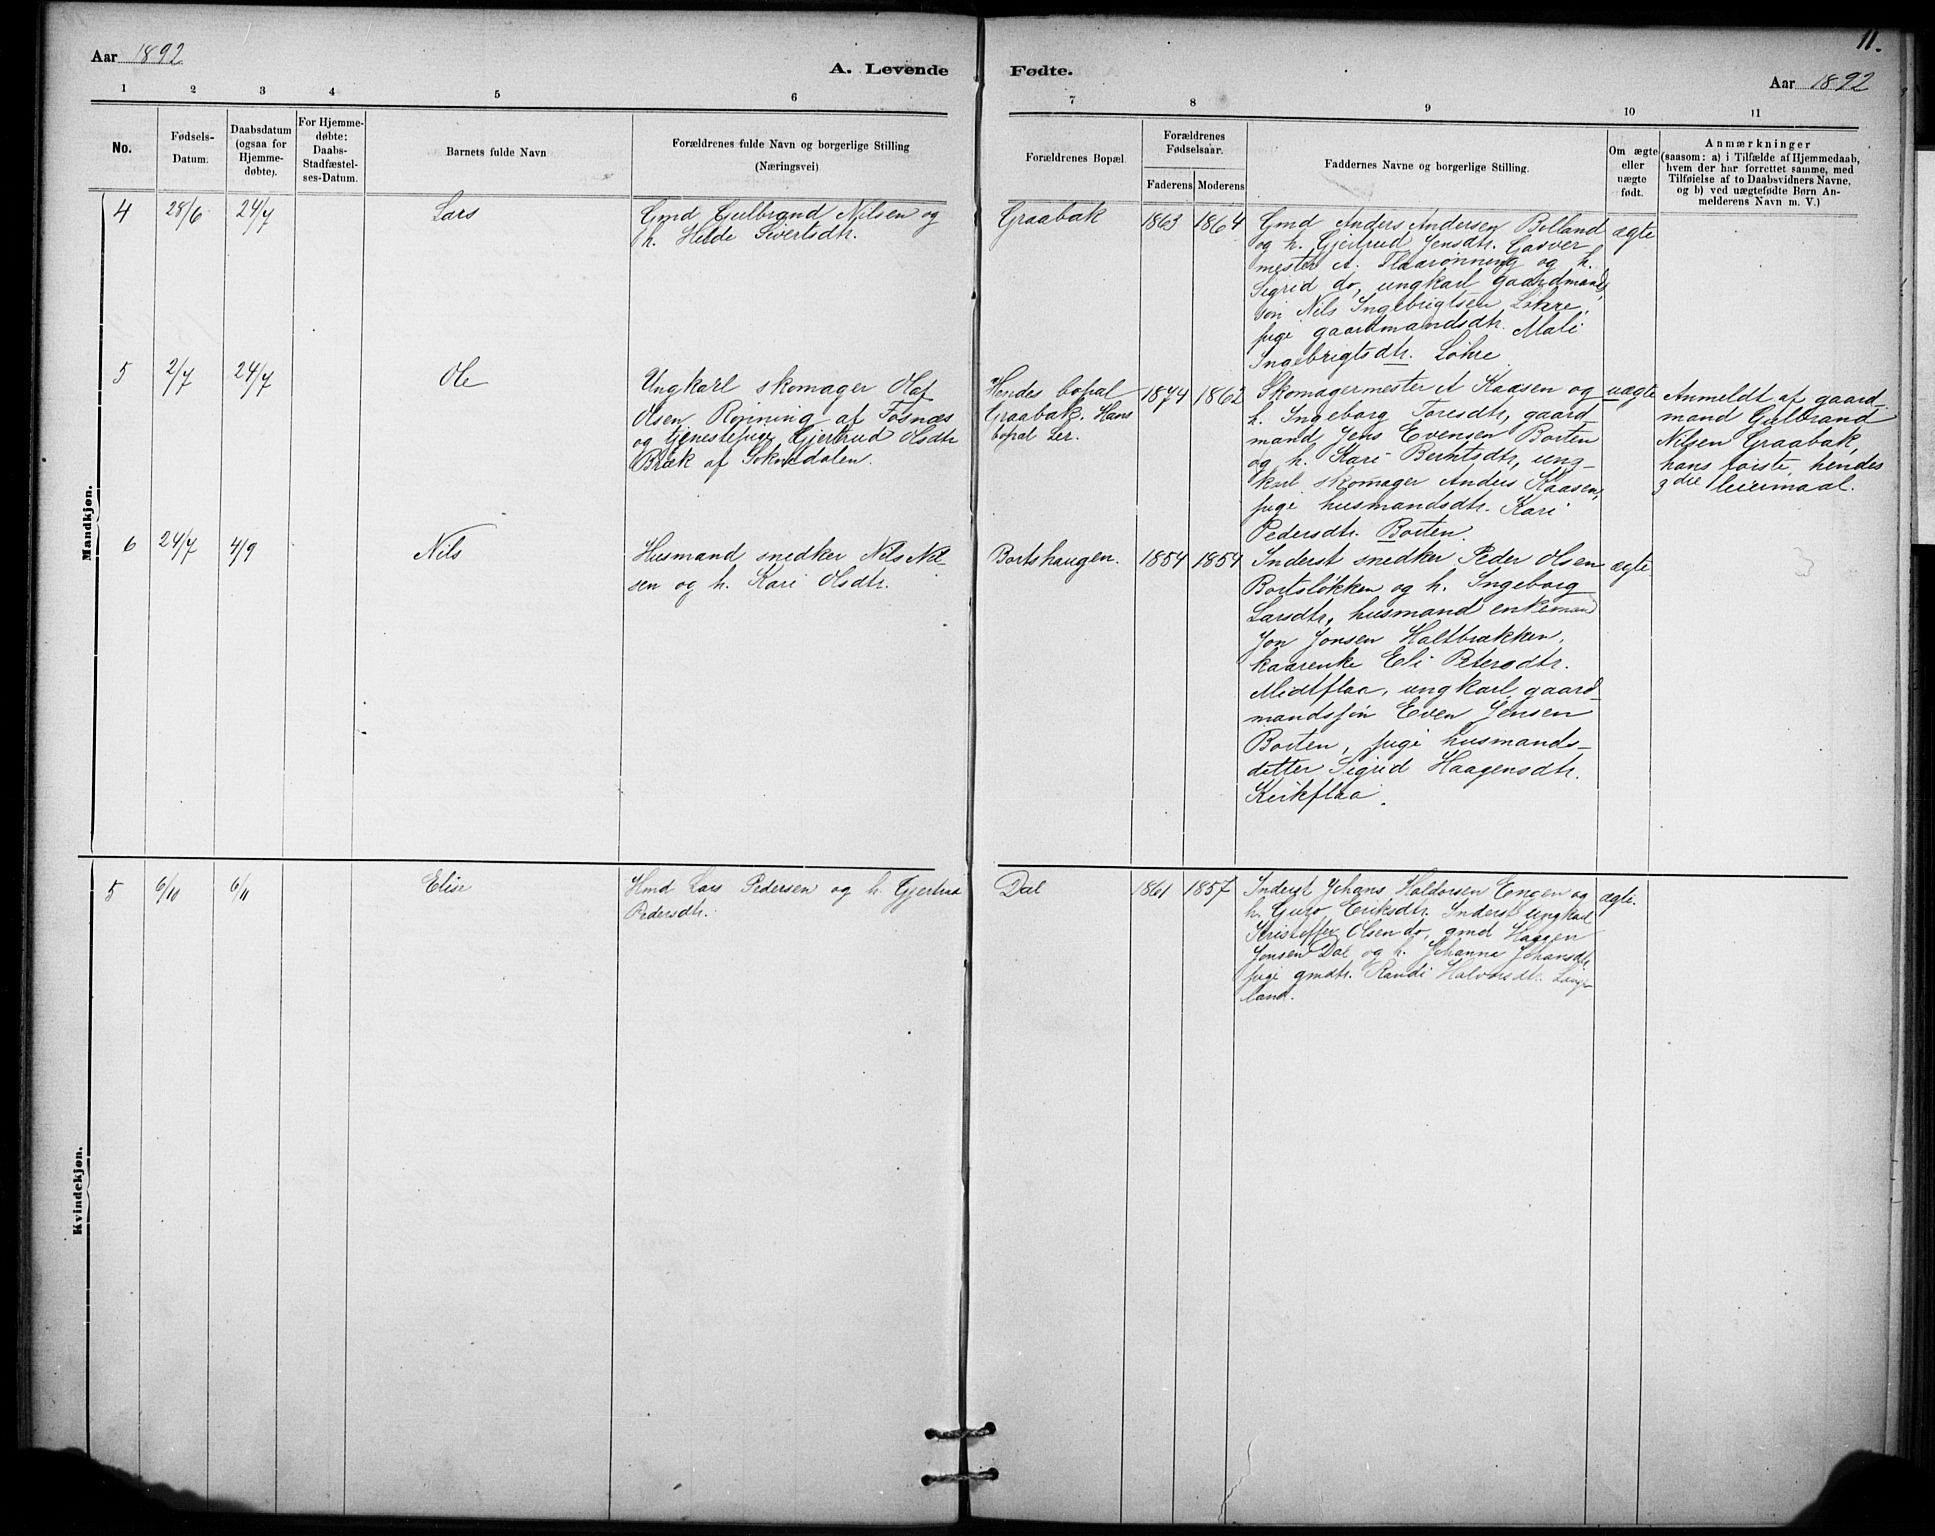 Aar 1892
A. Levende
Fødte.
11.
Aar 1892
1 2 3 4 5 6 7 8 9 10 11
No.
Fødsels-
Datum.
Daabsdatum
(ogsaa for
Hjemme-
døbte).
For Hjemme-
døbte:
Daabs-
Stadfæstel-
ses-Datum.
Barnets fulde Navn
Forældrenes fulde Navn og borgerlige Stilling
(Næringsvei)
Forældrenes Bopæl
Forældrenes
Fødselsaar.
Faderens Moderens
Faddernes Navne og borgerlige Stilling.
Om ægte
eller
uægte
født.
Anmærkninger
(saasom: a) i Tilfælde af Hjemmedaab,
hvem der har forrettet samme, med
Tilføielse af to Daabsvidners Navne,
og b) ved uægtefødte Børn An-
melderens Navn m. V.)
Mandkjøn.
4 28/6 24/7 Lars
Gmd Gulbrand Nilsen og
h. Hilde Sivertsdtr.
Graabak 1863 1864
Gmd Anders Andersen Bolland
og h. Gjertrud Jensdtr. Garver
mester A. Flaarønning og h.
Sigrid do, ungkarl gaardmands
søn Nils Ingebrigtsen Løhre,
pige gaardmandsdtr. Mali
Ingebrigtsdtr. Løhre
ægte
5 2/7 24/7 Ole
Ungkarl skomager Olaf
Olsen Rønning af Fosnæs
og tjenestepige Gjertrud Olsdtr
Bræk af Soknedalen.
Hendes bopæl
Graabak. Hans
bopæl Ler.
1874 1862
Skomagermester A Kaasen og
h. Ingeborg Toresdtr, gaard
mand Jens Evensen Borten
og h. Kari Berntsdtr, ung-
karl skomager Anders Kaasen,
pige husmandsdtr. Kari
Pedersdtr. Borten.
uægte
Anmeldt af gaard-
mand Gulbrand
Nilsen Graabak,
hans første, hendes
3die leiermaal.
6 24/7 4/9 Nils
Husmand snedker Nils Nil-
sen og h. Kari Olsdtr.
Bortshaugen. 1854 1854
Inderst snedker Peder Olsen
Bortsløkken og h. Ingeborg
Larsdtr, husmand enkemand
Jon Jonsen Haltbrækken,
kaarenke Eli Petersdtr.
Midtflaa, ungkarl gaard-
mandssøn Even Jensen
Borten, pige husmands-
detter Sigrid Haagensdtr.
Kirkflaa.
ægte
3
Kvindekjøn.
5 6/10 6/11 Elise
Hmd Lars Pedersen og h. Gjertrud
Pedersdtr.
Dal 1861 1857
Inderst Johans Haldorsen Engen og
h. Guro Eriksdtr. Inderst ungkarl
Kristoffer Olsen do, gmd Haagen
Jonsen Dal og h. Johanna Johansdtr
pige gmdtr. Randi Halvorsdtr.
land.
ægte.